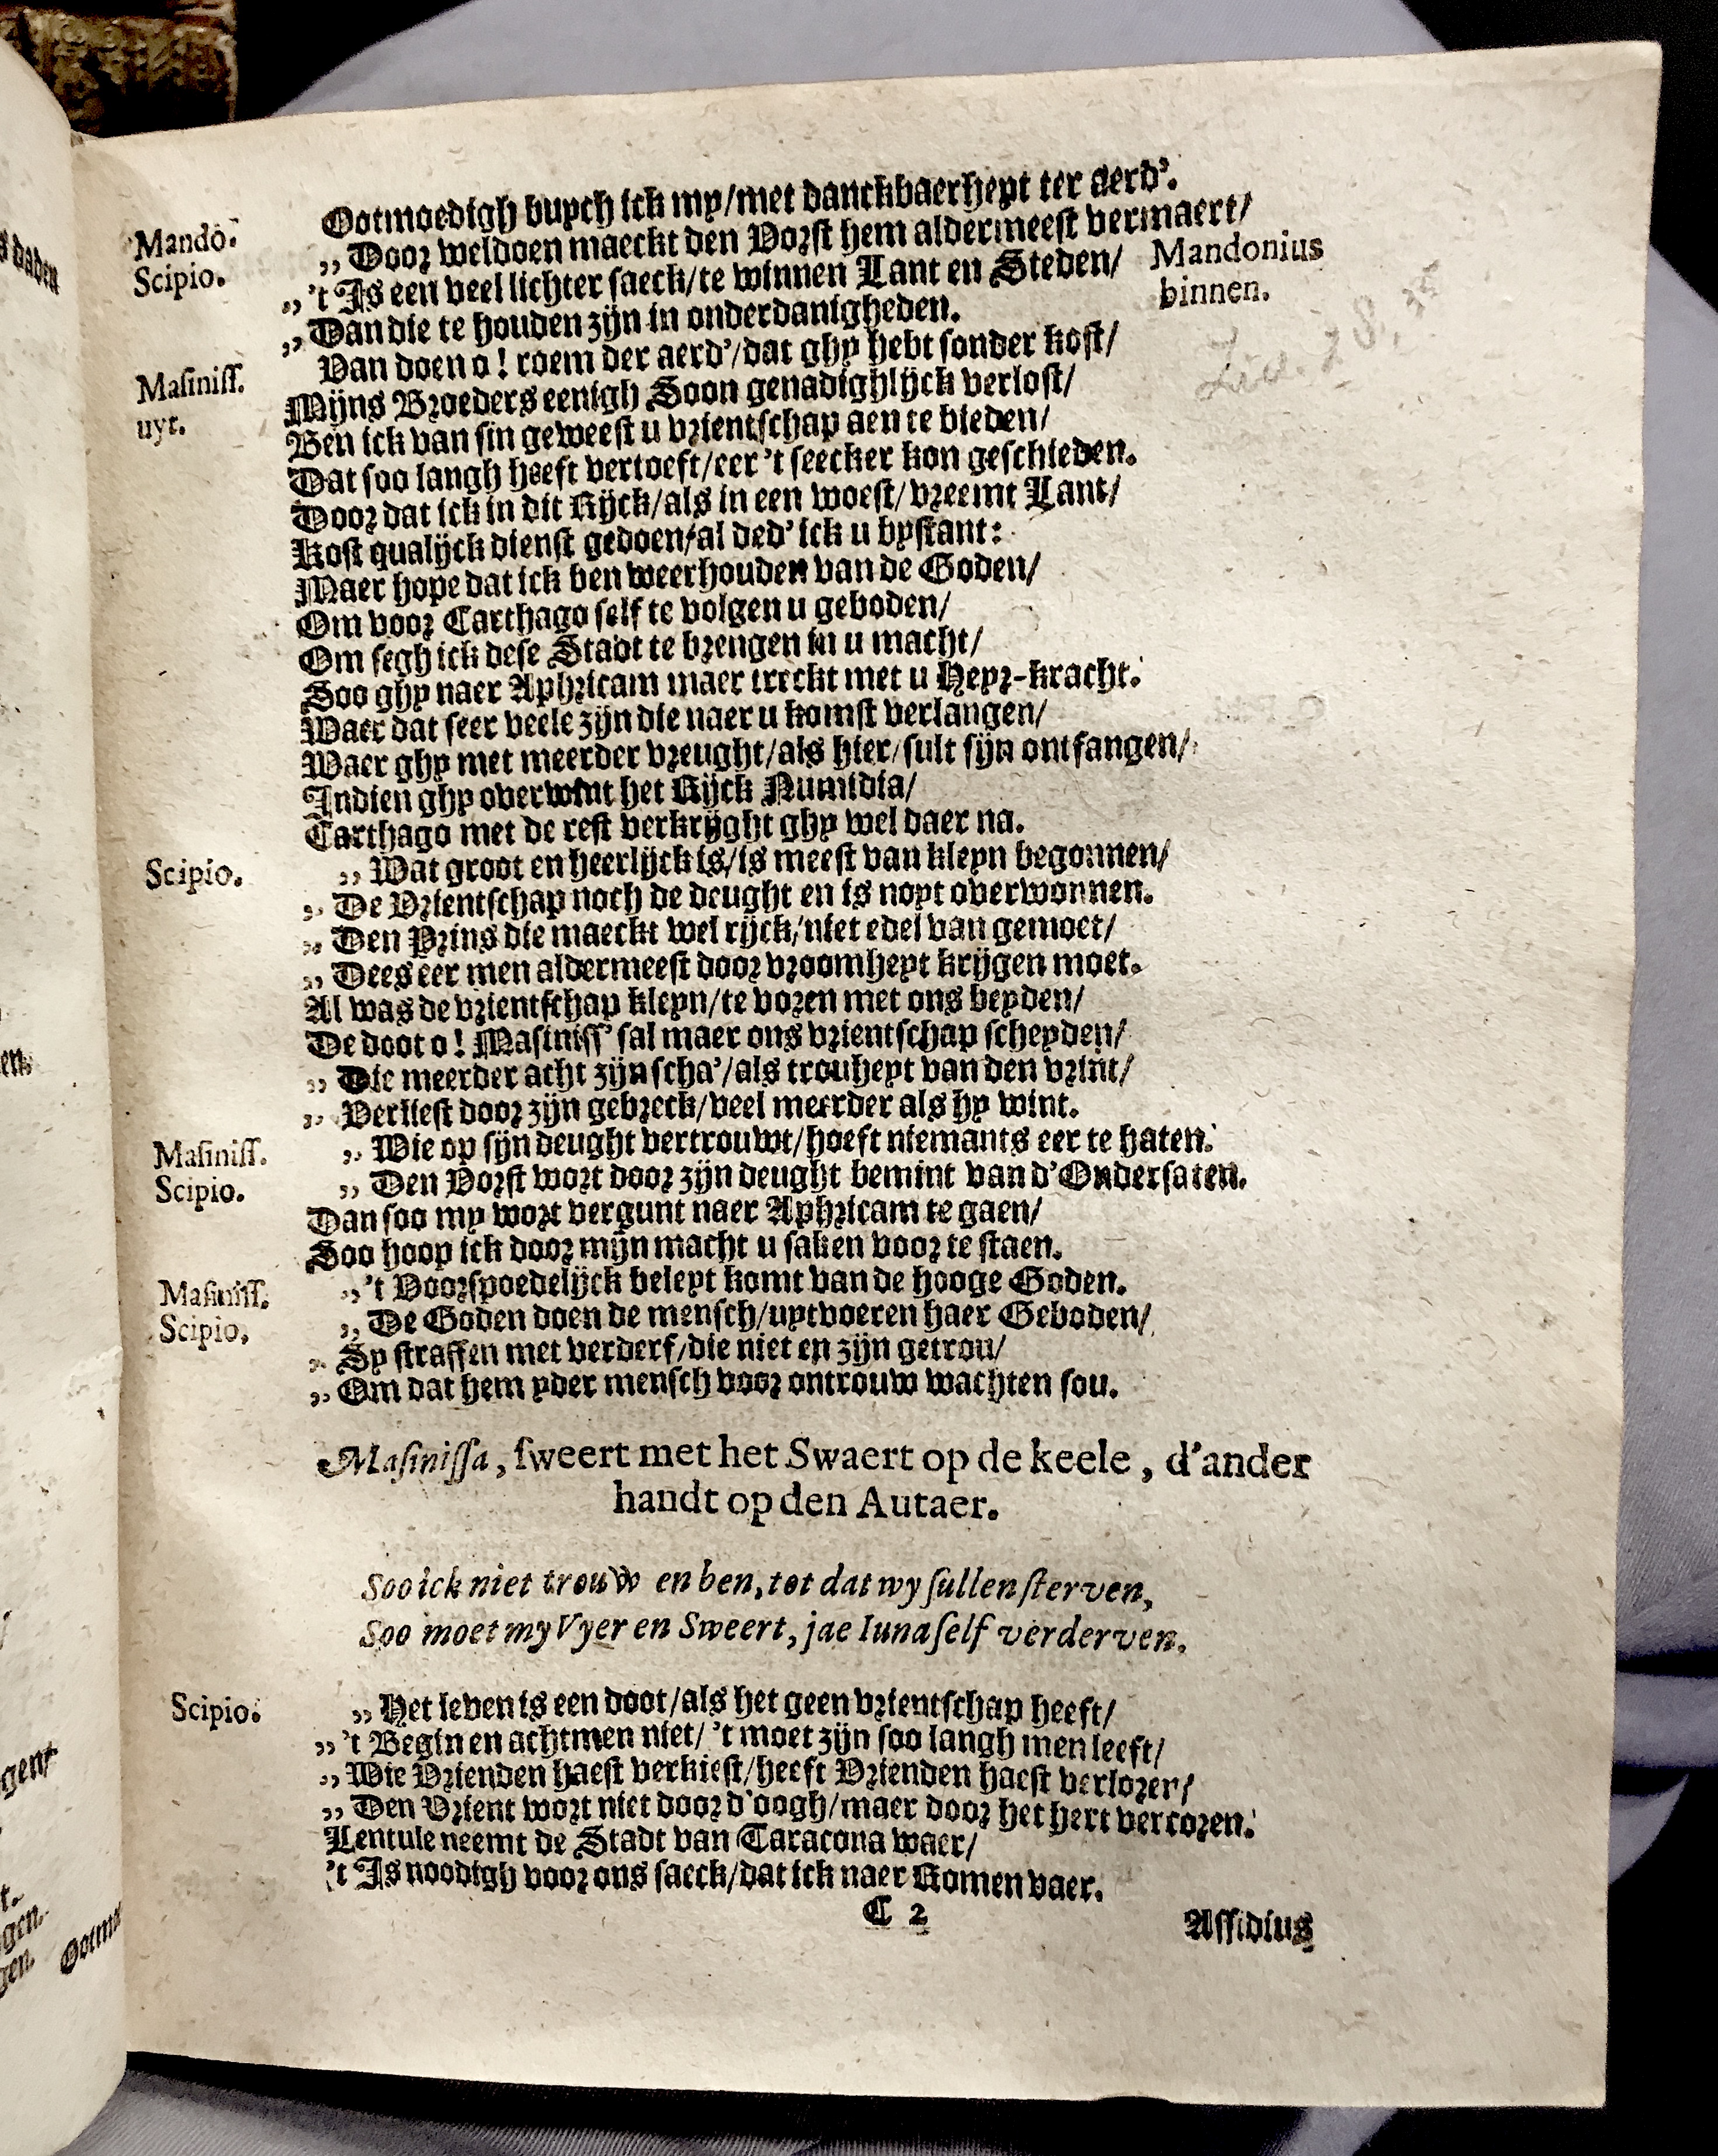 Mando. Ootmoedigh buych ick my/met danckbaerheyt ter aerd'.
Scipio. ,, Door weldoen maeckt den Vorst hem aldermeest vermaert/
,, 't Is een veel lichter saeck/te winnen Lant en Steden/ Mandonius
,, Dan die te houden zijn in onderdanigheden. binnen.
Masiniss. Van doen o! roem der aerd'/dat ghy hebt sonder kost/
uyt. Mijns Broeders eenigh Soon genadighlijck verlost/
Ben ick van sin geweest u vrientschap aen te bieden/
Dat soo langh heeft vertoeft/eer 't seecker kon geschieden.
Door dat ick in dit Rijck/als in een woest/vreemt Lant/
Kost qualijck dienst gedoen/al ded' ick u bystant:
Maer hope dat ick ben weerhouden van de Goden/
Om voor Carthago self te volgen u geboden/
Om segh ick dese Stadt te brengen in u macht/
Soo ghy naer Aphricam maer treckt met u Heyr-kracht.
Waer dat seer veele zijn die naer u komst verlangen/
Waer ghy met meerder vreught/als hier/sult sijn ontfangen/
Indien ghy overwint het Rijck Numidia/
Carthago met de rest verkrijght ghy wel daer na.
Scipio. ,, Wat groot en heerlijck is/is meest van kleyn begonnen/
,, De Vrientschap noch de deught en is noyt overwonnen.
,, Den Prins die maeckt wel rijck/niet edel van gemoet/
,, Dees eer men aldermeest door vroomheyt krijgen moet.
Al was de vrientschap kleyn/te voren met ons beyden/
De doot o! Masiniss' sal maer ons vrientschap scheyden/
,, Die meerder acht zijn scha'/als trouheyt van den vrint/
,, Verliest door zijn gebreck/veel meerder als hy wint.
Masiniss. ,, Wie op sijn deught vertrouwt/hoeft niemants eer te haten.
Scipio. ,, Den Vorst wort door zijn deught bemint van d'Ondersaten.
Dan soo my wort vergunt naer Aphricam te gaen/
Soo hoop ick door mijn macht u saken voor te staen.
Masiniss. ,, 't Voorspoedelijck beleyt komt van de hooge Goden.
Scipio. ,, De Goden doen de mensch/uytvoeren haer Geboden/
,, Sy straffen met verderf/die niet en zijn getrou/
,, Om dat hem yder mensch voor ontrouw wachten sou.
Masinissa, sweert met het Swaert op de keele, d'ander
handt op den Autaer.
Soo ick niet trouw en ben, tot dat wy sullen sterven,
Soo moet my Vyer en Sweert, jae Iuna self verderven.
Scipio. ,, Het leven is een doot/als het geen vrientschap heeft/
,, 't Begin en achtmen niet/ 't moet zijn soo langh men leeft/
,, Wie Vrienden haest verkiest/heeft Vrienden haest verloren/
,, Den Vrient wort niet door d'oogh/maer door het hert vercoren.
Lentule neemt de Stadt van Taracona waer/
't Is noodigh voor ons saeck/dat ick naer Romen vaer.
C 2 Assidius